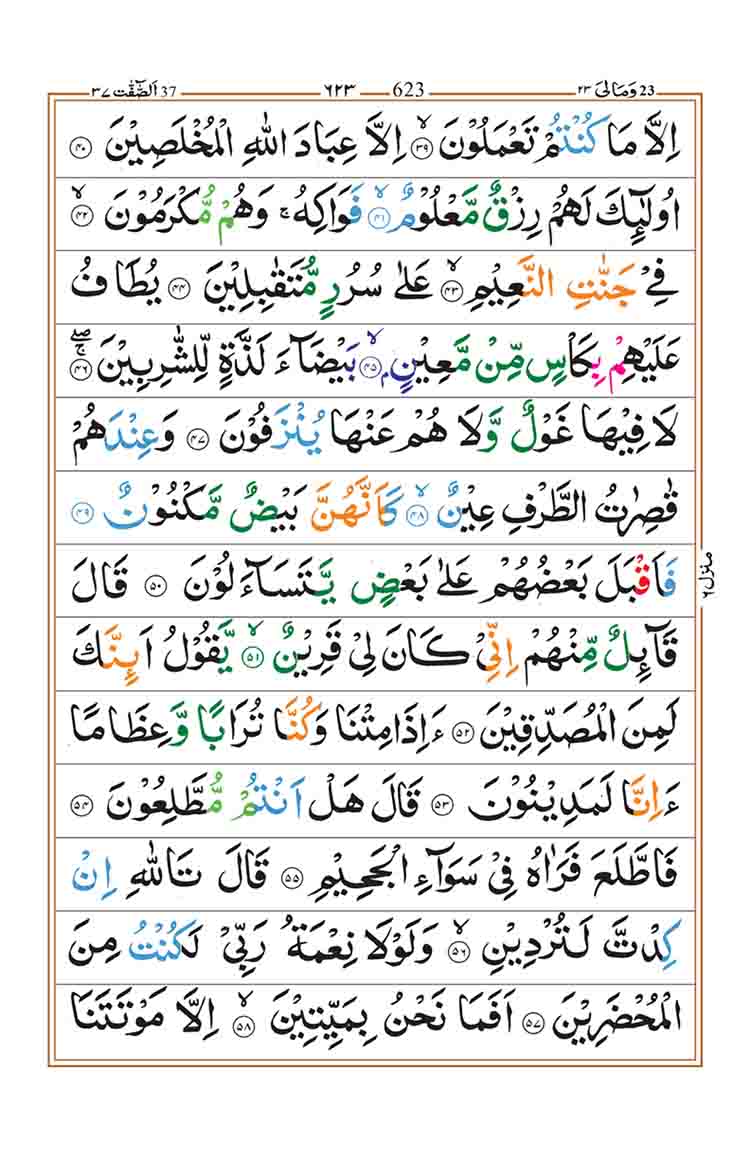 37 اَلصّٰٓفّٰت ٣٧ ٦٢٣ 623 23 وَمَالِیَ ٢٣
اِلَّا مَا كُنْتُمْ تَعْمَلُوْنَ ۙ‏﴿۳۹﴾ اِلَّا عِبَادَ اللّٰهِ الْمُخْلَصِيْنَ ﴿۴۰﴾
اُولٰٓئِكَ لَهُمْ رِزْقٌ مَّعْلُوْمٌ ۙ‏﴿۴۱﴾ فَوَاكِهُ ۚ وَهُمْ مُّكْرَمُوْنَ ۙ‏﴿۴۲﴾
فِیْ جَنّٰتِ النَّعِيْمِ ۙ‏﴿۴۳﴾ عَلٰى سُرُرٍ مُّتَقٰبِلِيْنَ ﴿۴۴﴾ يُطَافُ
عَلَيْهِمْ بِكَاْسٍ مِّنْ مَّعِيْنٍۭ ۙ‏﴿۴۵﴾ بَيْضَآءَ لَذَّةٍ لِّلشّٰرِبِيْنَ ۖۚ‏﴿۴۶﴾
لَا فِيْهَا غَوْلٌ وَّلَا هُمْ عَنْهَا يُنْزَفُوْنَ ﴿۴۷﴾ وَعِنْدَهُمْ
قٰصِرٰتُ الطَّرْفِ عِيْنٌ ۙ‏﴿۴۸﴾ كَاَنَّهُنَّ بَيْضٌ مَّكْنُوْنٌ ﴿۴۹﴾
فَاَقْبَلَ بَعْضُهُمْ عَلٰى بَعْضٍ يَّتَسَآءَلُوْنَ ﴿۵۰﴾ قَالَ
منزل ٦
قَآئِلٌ مِّنْهُمْ اِنِّیْ كَانَ لِیْ قَرِيْنٌ ۙ‏﴿۵۱﴾ يَّقُوْلُ اَئِنَّكَ
لَمِنَ الْمُصَدِّقِيْنَ ﴿۵۲﴾ ءَاِذَا مِتْنَا وَكُنَّا تُرَابًا وَّعِظَامًا
ءَاِنَّا لَمَدِيْنُوْنَ ﴿۵۳﴾ قَالَ هَلْ اَنْتُمْ مُّطَّلِعُوْنَ ﴿۵۴﴾
فَاطَّلَعَ فَرَاٰهُ فِیْ سَوَآءِ الْجَحِيْمِ ﴿۵۵﴾ قَالَ تَاللّٰهِ اِنْ
كِدْتَّ لَتُرْدِيْنِ ۙ‏﴿۵۶﴾ وَلَوْلَا نِعْمَةُ رَبِّیْ لَكُنْتُ مِنَ
الْمُحْضَرِيْنَ ﴿۵۷﴾ اَفَمَا نَحْنُ بِمَيِّتِيْنَ ۙ‏﴿۵۸﴾ اِلَّا مَوْتَتَنَا